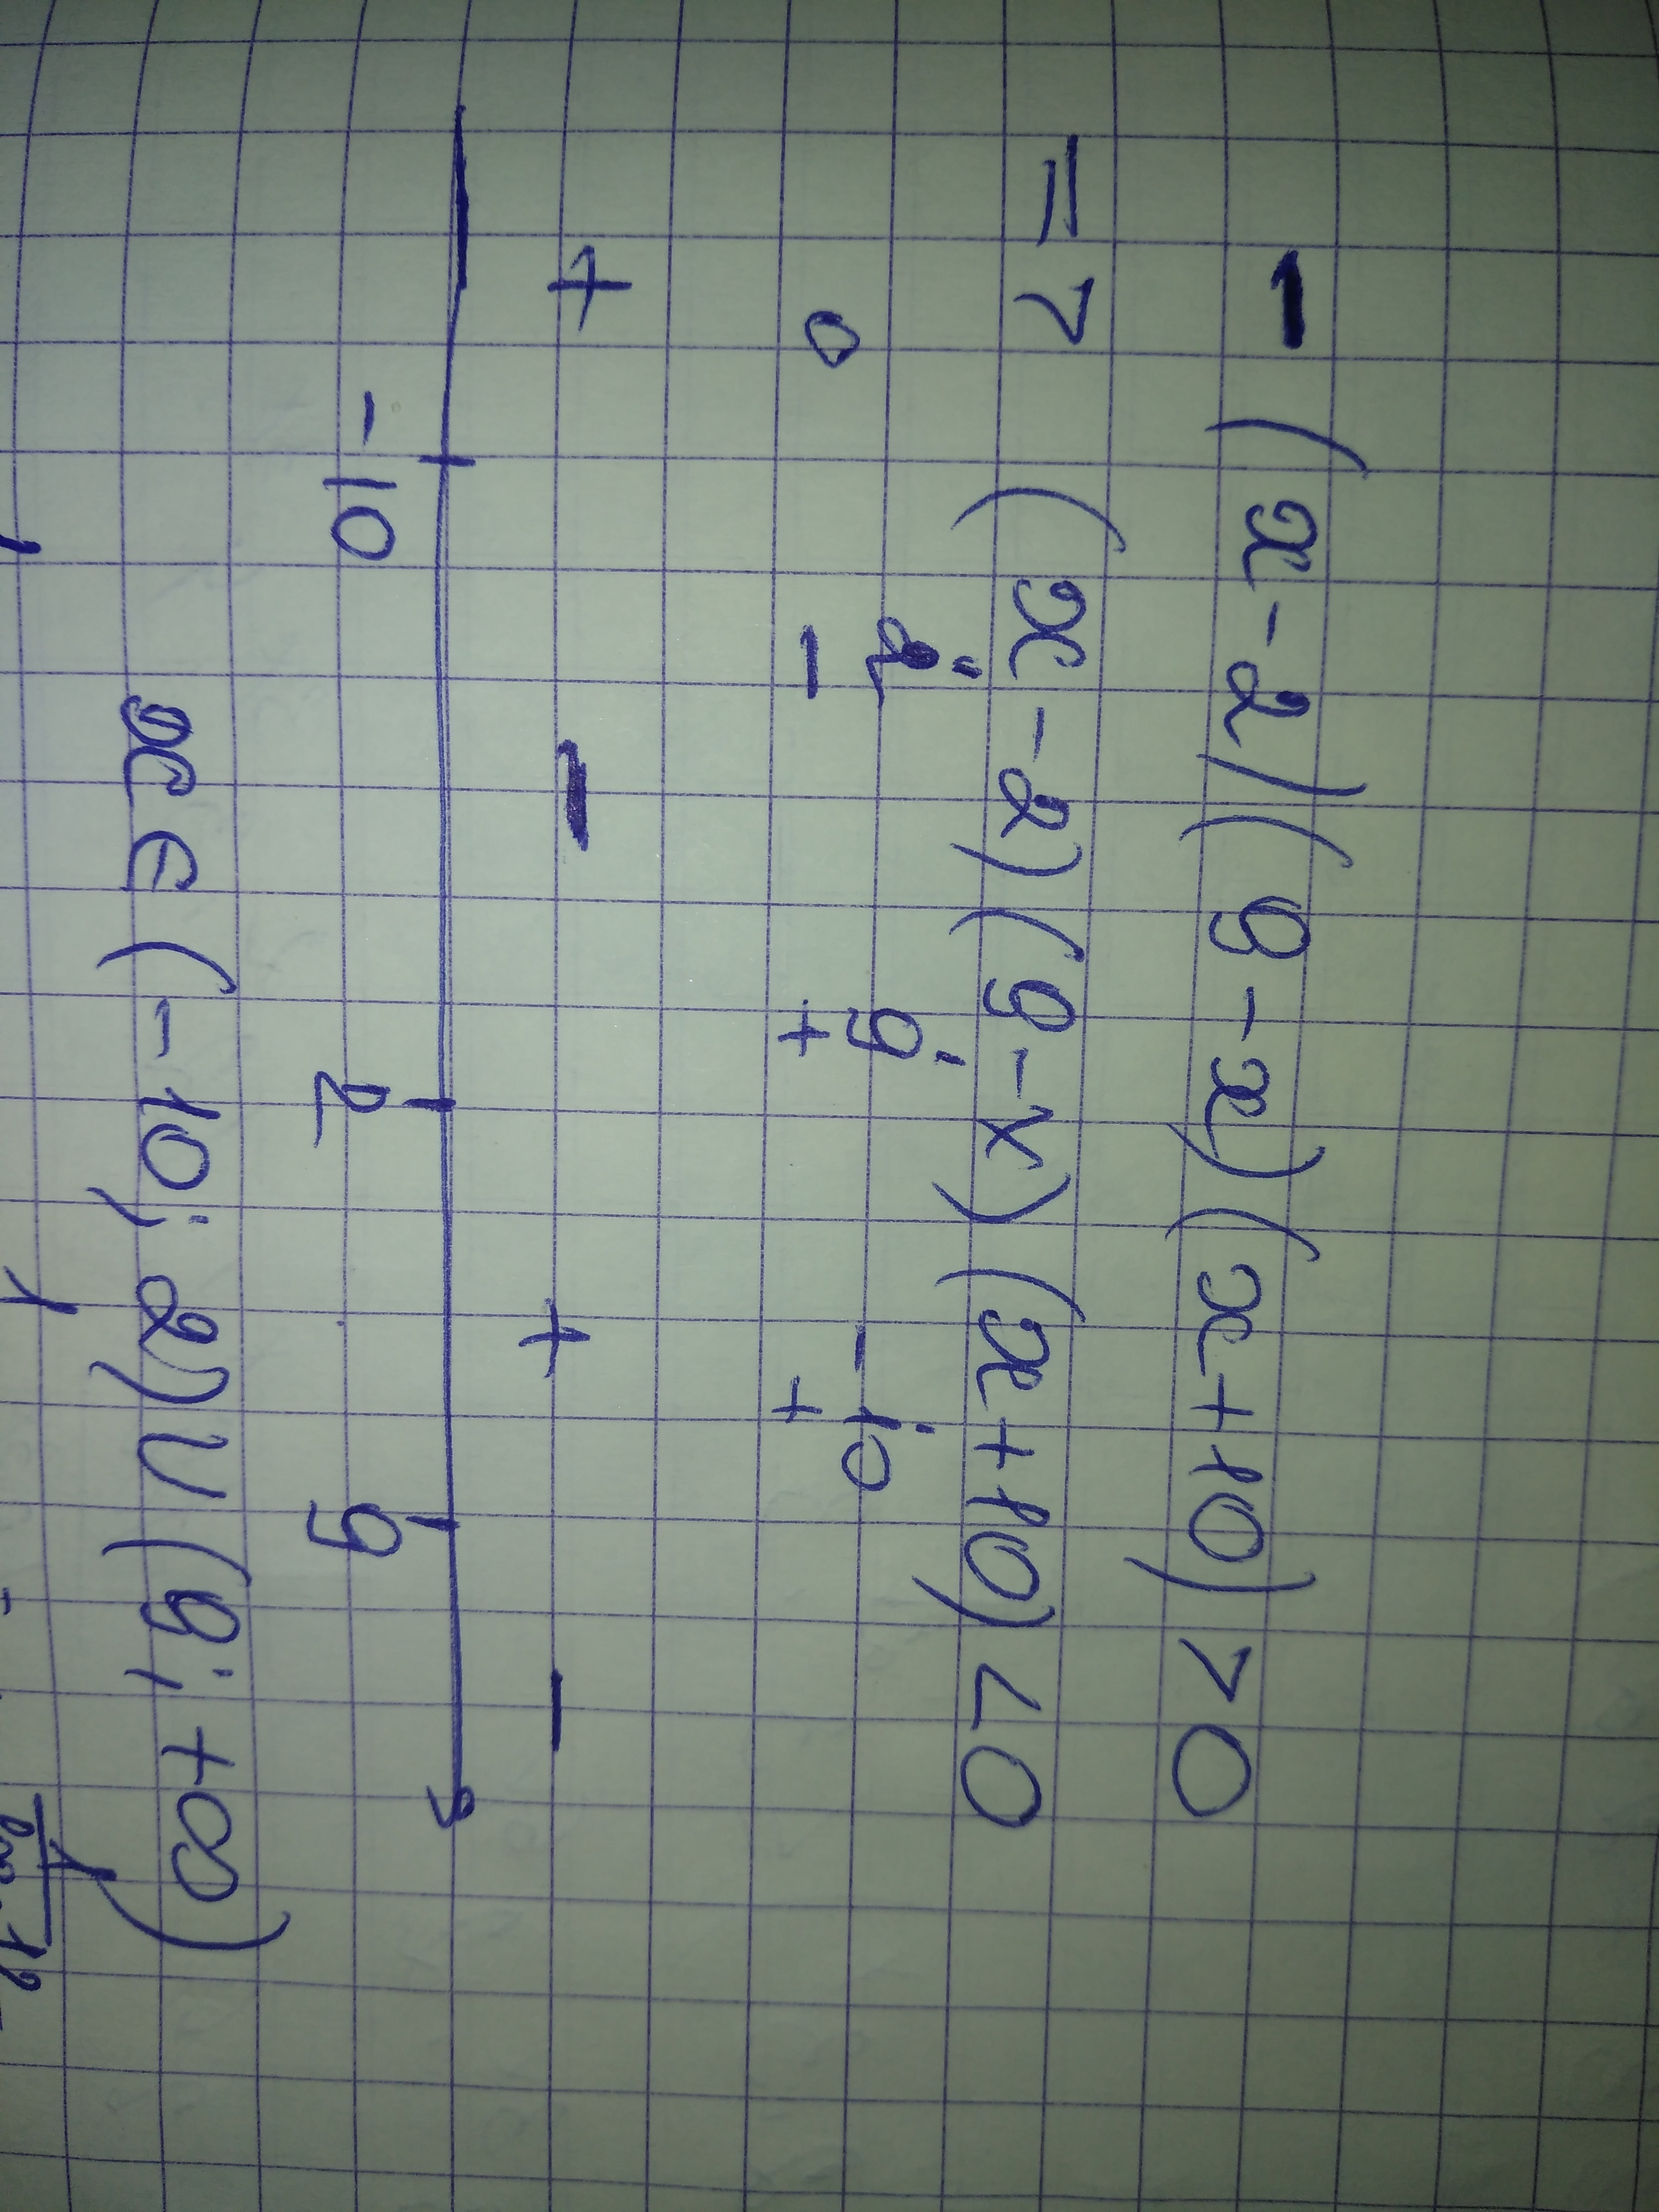 - (x-2)(9-x)(x+10) > 0
=> (x-2)(9-x)(x+10) < 0
2 9 -10
0 - + +
+ - + -
-10 2 9
x ∈ (-10; 2) ∪ (9; +∞)